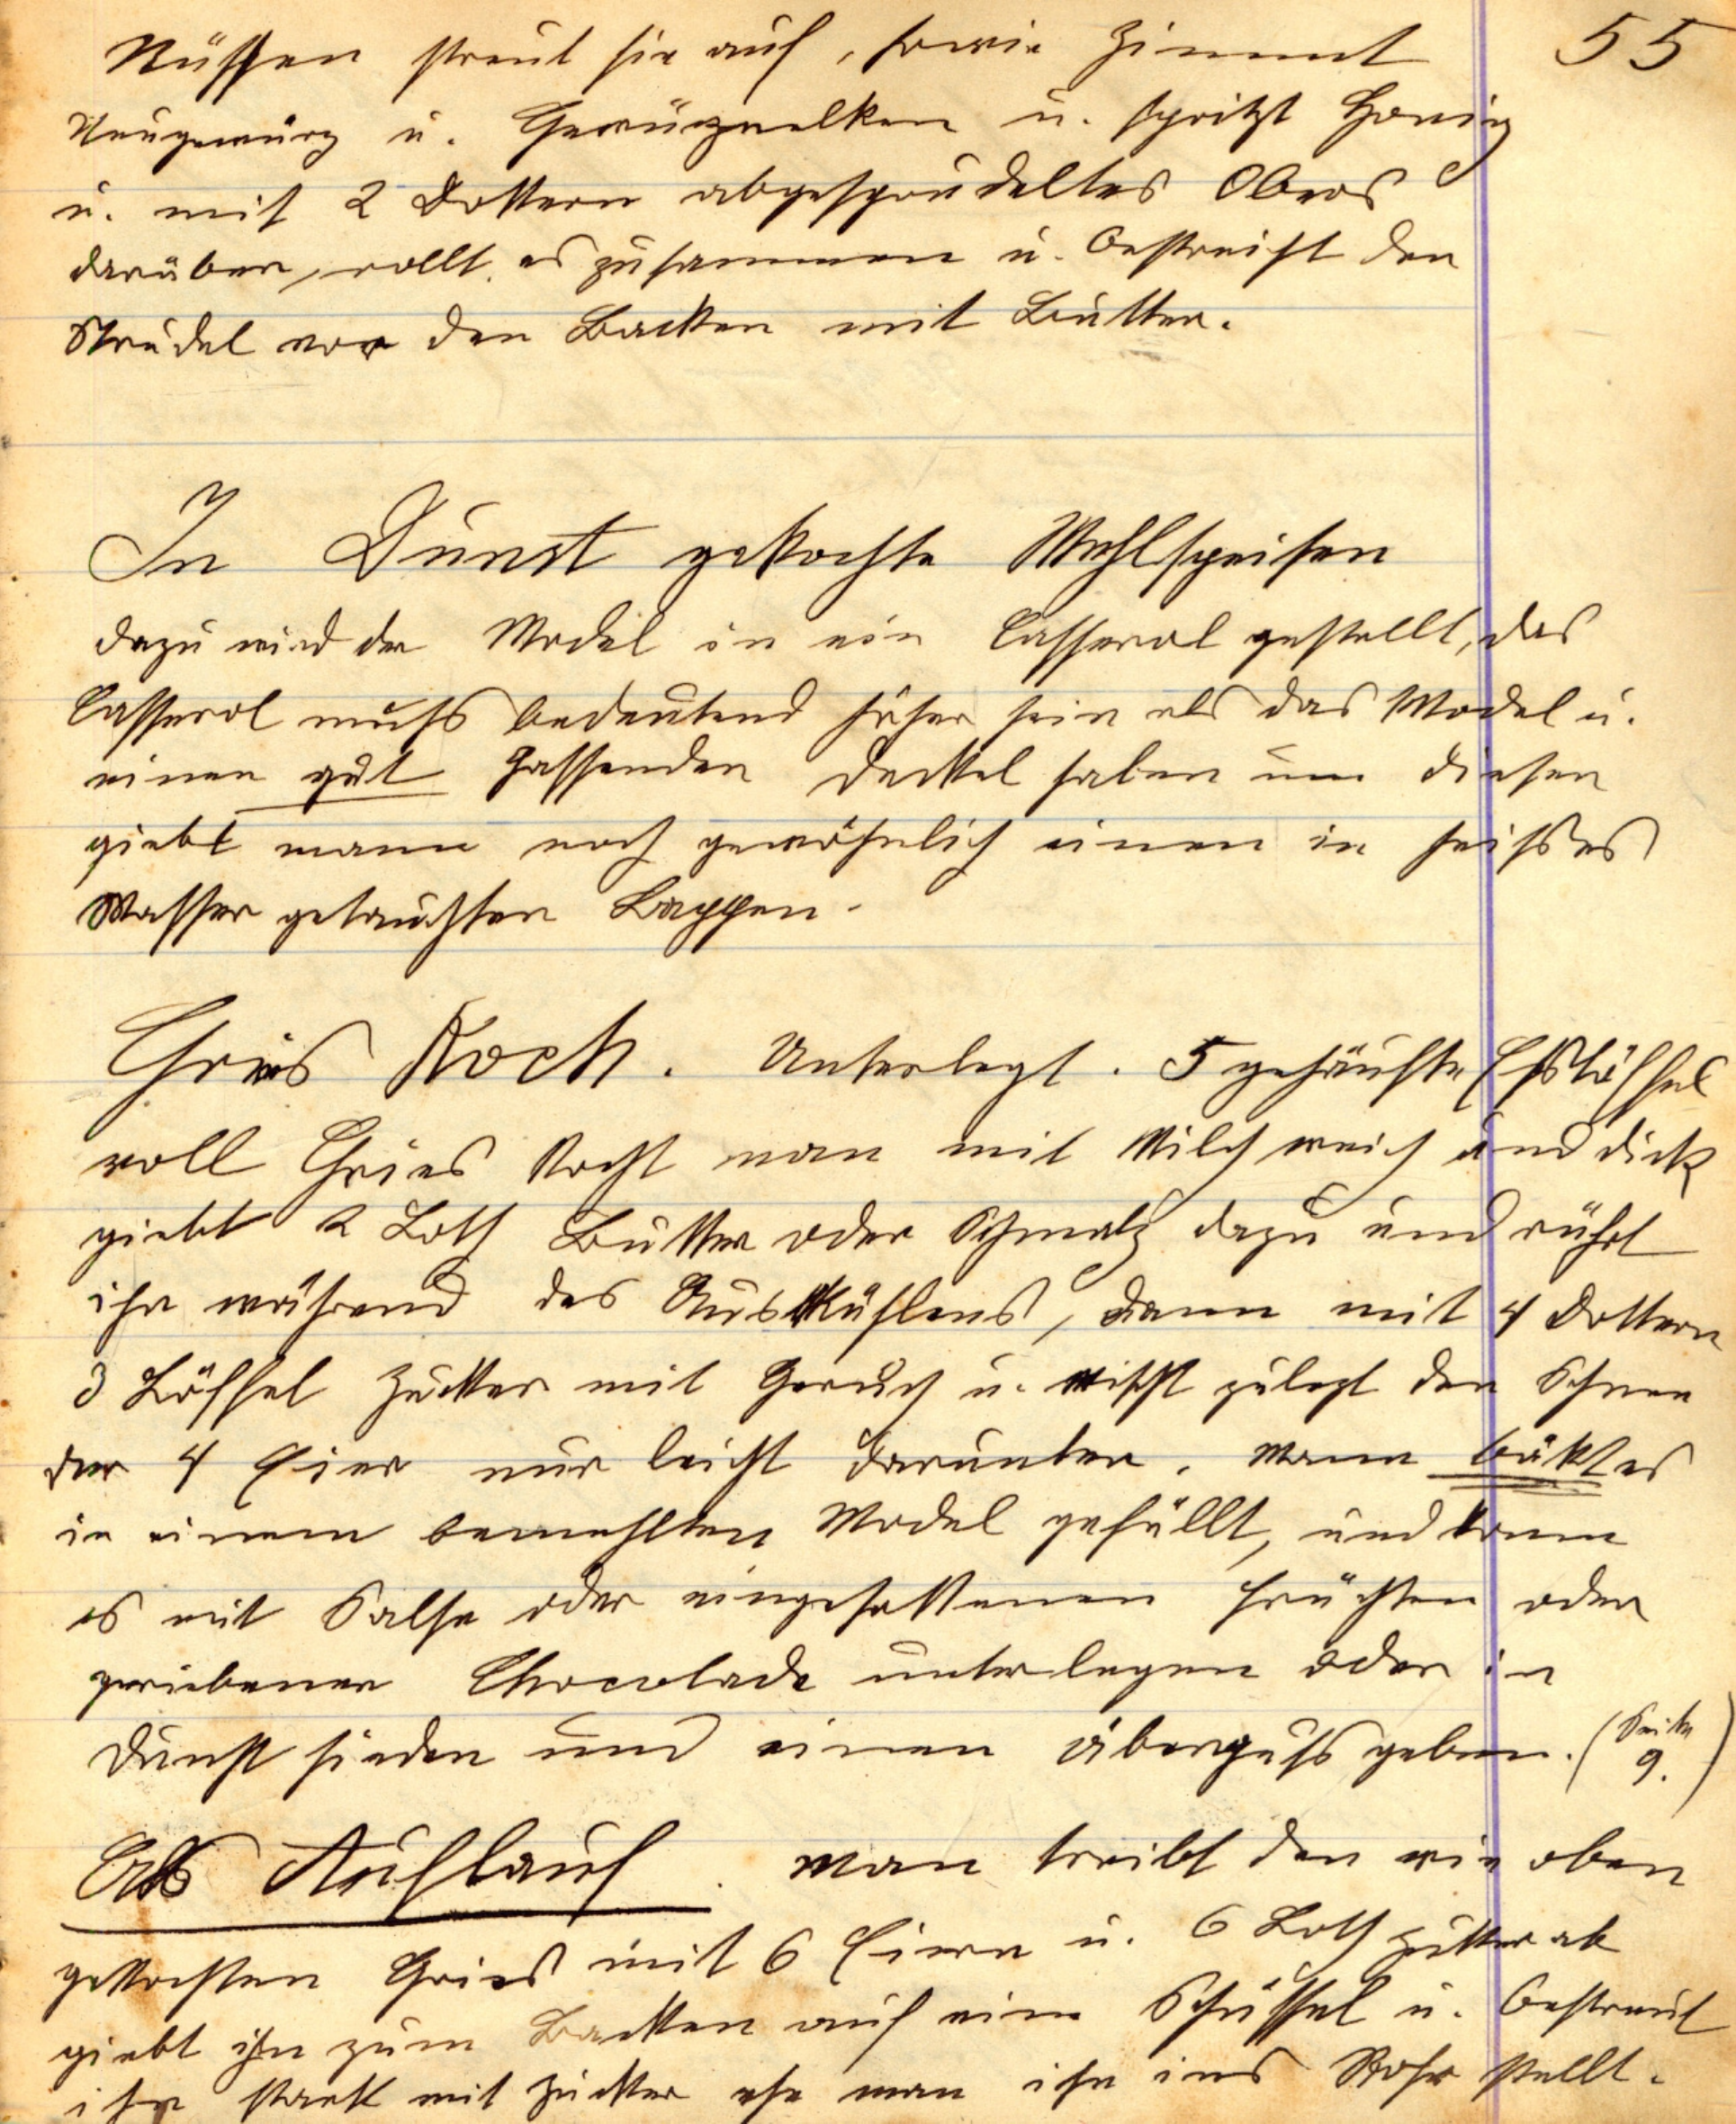 55
Nüssen streut sie auf, sowie Zimmt
Neugewürz u. Gewürznelken u. spritzt Honig
u. mit 2 Dottern abgesprudeltes Obers
darüber, rollt es zusammen u. bestreicht den
Strudel vor den Backen mit Butter.
In Dunst gekochte Mehlspeisen
dazu wird der Model in ein Casserol gestellt, das
Casserol muß bedeutend höher sein als das Model u.
einen gut passenden Deckel haben um diesen
giebt mann noch gewöhnlich einen in heißes
Wasser getauchten Lappen.
Gries Koch. Unterlegt. 5 gehäufte Eßlöffel
voll Gries kocht man mit Milch weich und dick
giebt 2 Loth Butter oder Schmalz dazu und rührt
ihn während des Auskühlens, dann mit 4 Dottern
3 Löffel Zucker mit Geruch u. mischt zuletzt den Schnee
der 4 Eier nur leicht darunter. Mann bäkt es
in einem bemehlten Model gefüllt, und kann
es mit Salse oder eingesottenen Früchten oder
geriebener Chocolade unterlegen oder in
Dunst sieden und einen Überguß geben. (Seite 9.)
Als Auflauf. Man treibt den wie oben
gekochten Gries mit 6 Eiern u. 6 Loth Zucker ab
giebt ihn zum Backen auf eine Schüssel u. bestreut
ihn stark mit Zucker ehe man ihn ins Rohr stellt.